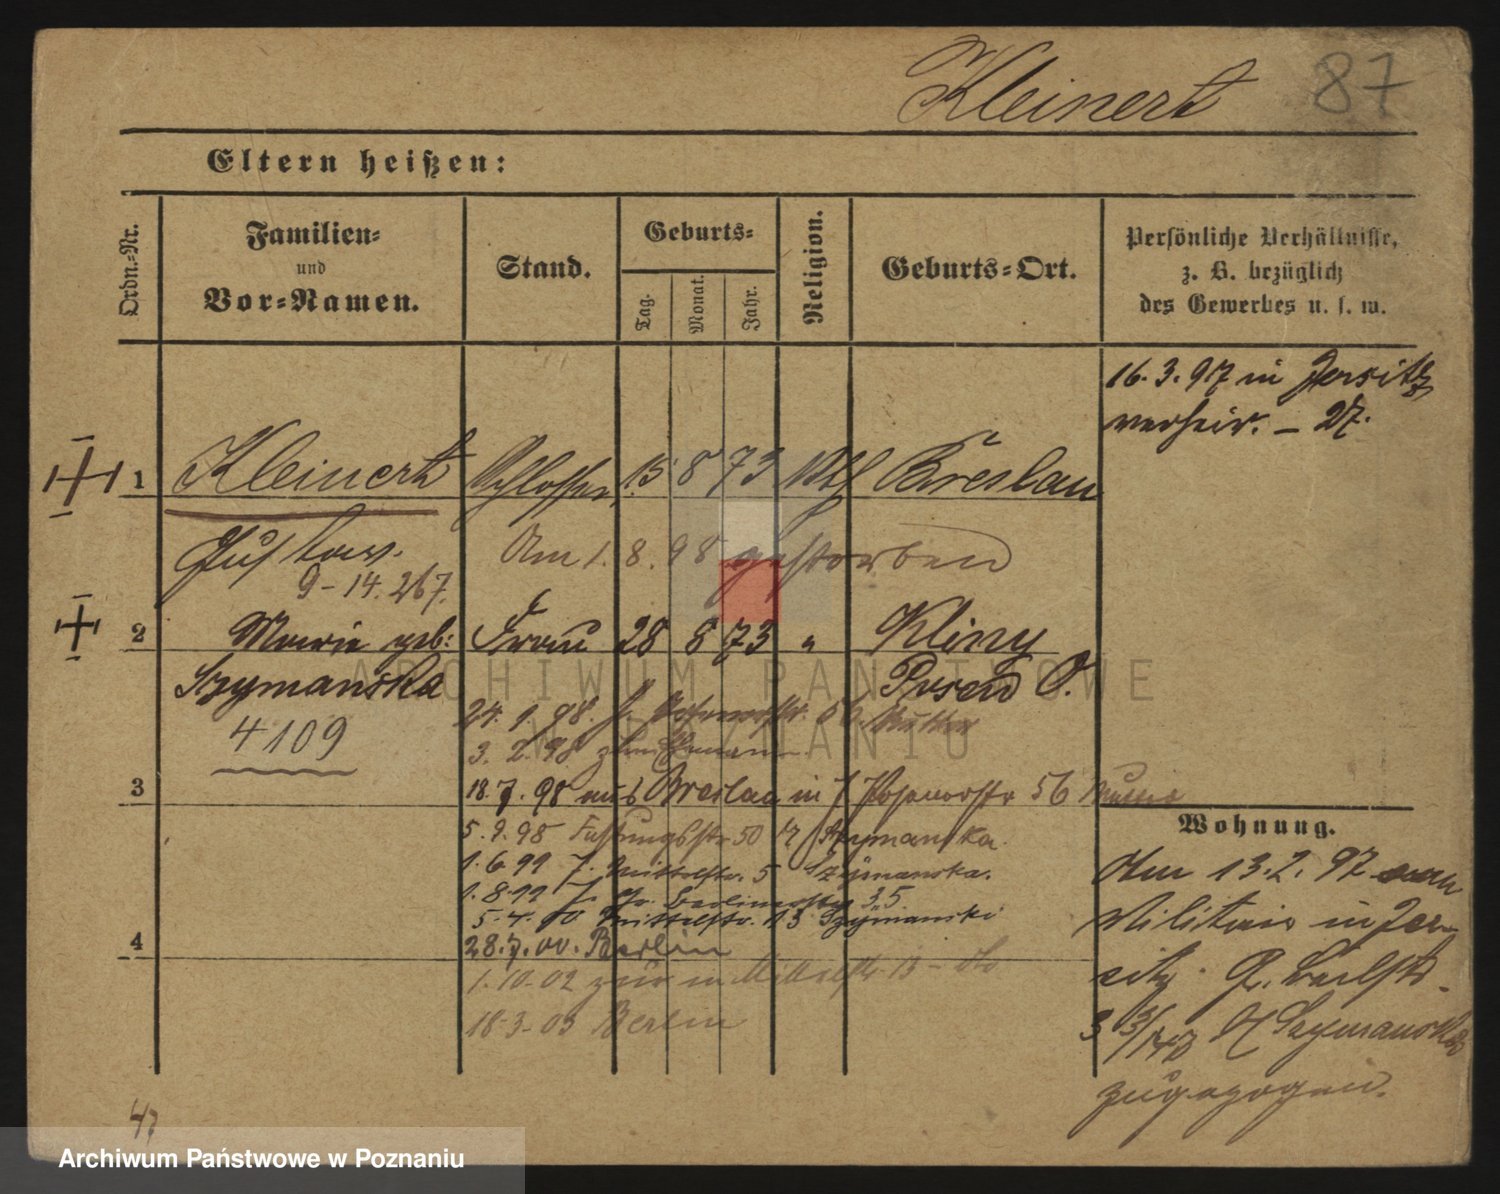 Kleinert 87
Eltern heißen:
Ordn.-Nr.
Familien-
und
Vor-Namen.
Stand.
Geburts-
Tag.
Monat.
Jahr.
Religion.
Geburts-Ort.
Persönliche Verhältnisse,
z. B. bezüglich
des Gewerbes u. s. w.
16.3.97 in Jersitz
verheir. – 27.
1 Kleinert Schlosser 15 8 73 Kth Breslau
Gustav.
Am 1. 8. 98 gestorben
9 – 14. 267.
2 Marie geb: Frau 28 8 73 " Kliny
Szymanska Posen O.
4109
24. 1. 98.
3. 2. 98 zum Ehemann
3 18.7.98 aus Breslau in J Posenerstr 56
5.9.98 50 Szymanska.
1.6.99 J. Mittelstr. 5 Szymanska.
1.8.99 J. Gr. Berlinerstr 35
5.4.00 Mittelstr. 13 Szymanski
4 28.7.00. Berlin
1.10.02 zur in Mittelstr 13
18-3-03 Berlin
Wohnung.
Am 13.2.97 vom
Militair in Jer-
sitz Gr.
3 Szymanska
zugezogen.
47
ARCHIWUM PAŃSTWOWE
W POZNANIU
Archiwum Państwowe w Poznaniu